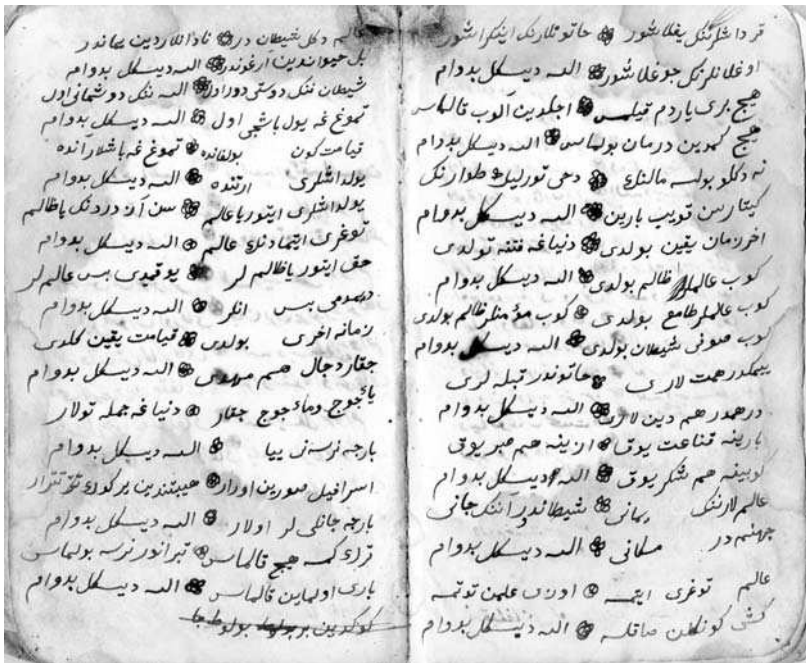 قرداشلرنكنى يغلاشور خاتونلارنك اينكراشور
اوغلانلرنك جوغلاشور الله ديسكل بدوام
هيج برى ياردم قيلمس اجلدين الوب قالماس
هيج كمدين درمان بولماس الله ديسكل بدوام
نه دكلو بولسه مالنك دخى تورليك طوارنك
كيتارسن قويب بارين الله ديسكل بدوام
اخر زمان يقين بولدى دنياغه فتنه تولدى
كوب عالملر ظالم بولدى الله ديسكل بدوام
كوب عالملر طامع بولدى كوب مؤمنلر ظالم بولدى
كوب صوفى شيطان بولدى الله ديسكل بدوام
ييمكدر همت لارى خاتوندر قبله لرى
درهمدر هم دين لارى الله ديسكل بدوام
بارينه قناعت يوق ازينه هم صبر يوق
كوبينه هم شكر يوق الله ديسكل بدوام
عالم لارننك يمانى شيطاندر اننك جانى
جهنم در مكانى الله ديسكل بدوام
عالم توغرى ايتمسه اوزى علمن توتمسه
كشى كونكلن صاقلسه الله ديسكل بدوام
عالم دكل شيطان در نادانلاردين يماندر
بل حيواندين ارغوندر الله ديسكل بدوام
شيطان ننك دوستى دور اول الله ننك دوشمانى اول
تموغ غه يول باشجى اول الله ديسكل بدوام
قيامت كون بولغانده تموغ غه باشلارانده
يولداشلرى ارتنده الله ديسكل بدوام
يولداشلرى ايتور يا عالم سن آزدردنك يا ظالم
توغرى ايتمادنك عالم الله ديسكل بدوام
حق ايتور يا ظالم لر يوقمدى بس عالم لر
ديمدمى بس انلر الله ديسكل بدوام
زمانه اخرى بولدى قيامت يقين كلدى
جقار دجال هم مهدى الله ديسكل بدوام
يأجوج ومأجوج جقار دنياغه جمله تولار
بارجه نرسنى ييا الله ديسكل بدوام
اسرافيل صورين اورار هيبتندين ير كوك تتrar
بارجه جانلى لر اولار الله ديسكل بدوام
تراك كمسه هيج قالماس تبرانور نرسه بولماس
بارى اولماين قالماس الله ديسكل بدوام
كوكدين بر بولوط